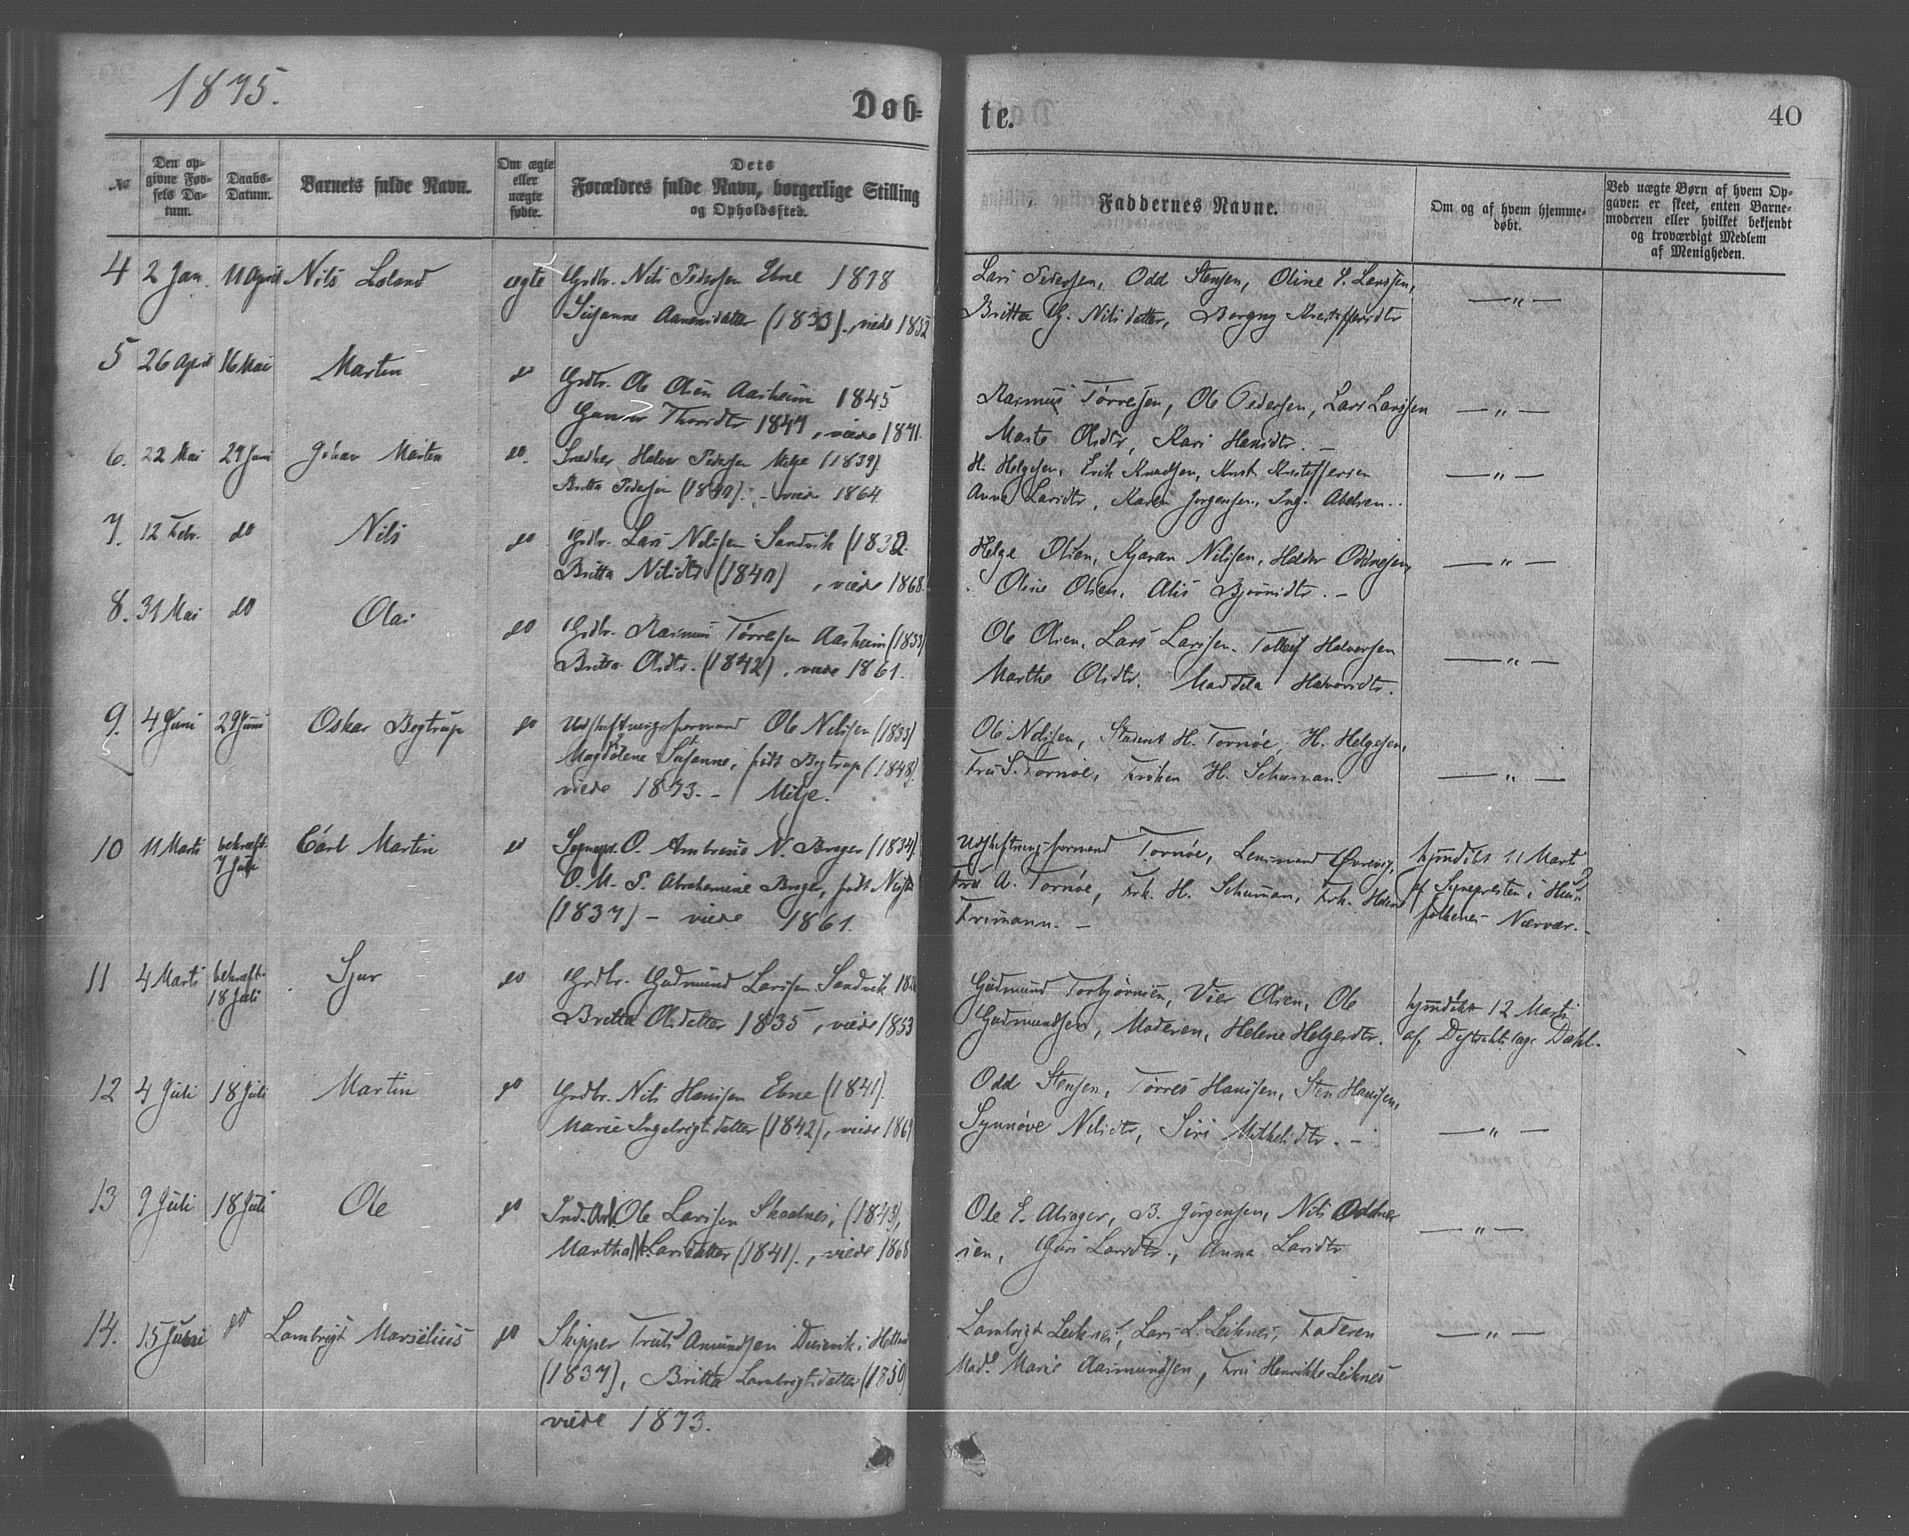 1875.
Døb=
te.
40
No
Den op-
givne Fød-
sels Da-
tum.
Daabs-
Datum.
Barnets fulde Navn.
Om ægte
eller
uægte
fødte.
Dets
Forældres fulde Navn, borgerlige Stilling
og Opholdssted.
Faddernes Navne.
Om og af hvem hjemme-
døbt.
Ved uægte Børn af hvem Op-
gaven er skeet, enten Barne-
moderen eller hvilket bekjendt
og troværdigt Medlem
af Menigheden.
4 2 Jan. 11 April Nils Loland ægte Grdbr. Nils Pedersen Ebne 1828
Susanne Aanensdatter (1833), viede 1852
Lars Pedersen, Odd Stensen, Oline P. Larssen,
Britta G. Nilsdatter, Borgny Kristoffersdtr
— " —
5 26 April 16 Mai Martin do Grdbr. Ole Olsen Aasheim 1845
Thorsdtr 1847, viede 1871.
Rasmus Tørresen, Ole Pedersen, Lars Larssen
Marte Olsdtr, Kari Hansdtr. —
— " —
6. 22 Mai 29 Juni Johan Martin do. Snedker Halvor Pedersen Mitje (1839)
Britta Pedersen (1840). — viede 1864
H. Helgesen, Erik Knudsen, Knut Kristoffersen
Anna Larsdtr, Karen Jørgensen, Ing. Abelsen.
— " —
7. 12 Febr. do Nils do Grdbr. Lars Nilssen Sandvik (1832.
Britta Nilsdtr (1840), viede 1868.
Helge Olsen, Gjøran Nilssen, Haldor Oddnesen,
Oline Olsen, Alis Bjørnsdtr. —
— " —
8. 31 Mai do Olai do Grdbr. Rasmus Tørresen Aasheim (1833)
Britta Olsdtr. (1842), viede 1861.
Ole Olsen, Lars Larssen. Tollef Halvorsen
Marthe Olsdtr. Maddela Halvorsdtr.
— " —
9. 4 Juni 29 Juni Oskar Bøgtrup do Udskiftningsformand Ole Nilssen (1835)
Magdalene Susanne, født Bøgtrup (1848)
viede 1873. — Mitje.
Ole Nilssen, Student H. Tornøe, H. Helgesen,
Fru S. Tornøe, Frøken H. Schuman.
— " —
10 11 Marts bekræft. Carl Martin do Sognepr. O. Ambrosius N. Brager (1834)
O. M. S. Abrahamine Brager, født
(1837) — viede 1861.
Udskiftningsformand Tornøe, Lensmand Øvrevig,
Fru A. Tornøe, Frk. H. Schuman, Frk. Helene
Frimann. —
hjmdøbt 11 Marts
af Sognepresten i Huus
folkenes Nærvær. —
11 4 Marts bekræft. 18 Juli Sjur do Grdbr. Gudmund Larssen Sandvik
Britta Olsdatter 1835, viede 1853
Gudmund Torbjørnsen, Vier Olsen, Ole
Gudmundsen, Moderen, Helene Helgesdtr.
hjmdøbt 12 Marts
af Distriktslæge Dahl.
12 4 Juli 18 Juli Martin do Grdbr. Nils Hanssen Ebne (1841).
Marie Ingebrigtsdatter (1842), viede 1869
Odd Stensen, Tørres Hanssen, Sten Hanssen,
Synnøve Nilsdtr, Siri Mikkelsdtr. —
— " —
13 9 Juli 18 Juli Ole do Ind. Arb. Ole Larssen Skadnes, (1843),
Martha N. Larsdatter (1841)., viede 1868
Ole E. Alsager, B. Jørgensen, Nils Oddne
sen, Guri Larsdtr., Anna Larsdtr
— " —
14. 15 Juni do Lambrigt Marselius do Skipper Truls Amundsen Dusevik i Hetland
(1837), Britta Lambrigtsdatter (1850)
viede 1873.
Lambrigt Leiknes, Lars L. Leiknes, Faderen
Mad. Marie Aasmundsen, Fru Henrikke Leiknes
— " —